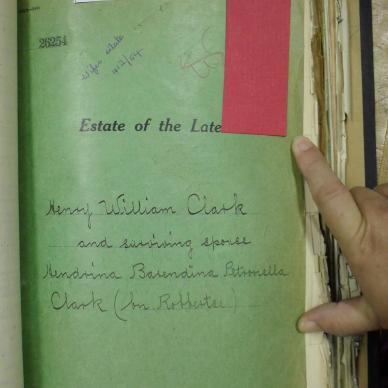 26254
Wife's estate
412/54
Estate of the Late
Henry William Clark
and surviving spouse
Hendrina Barendina Petronella
Clark (bn Robbertse)